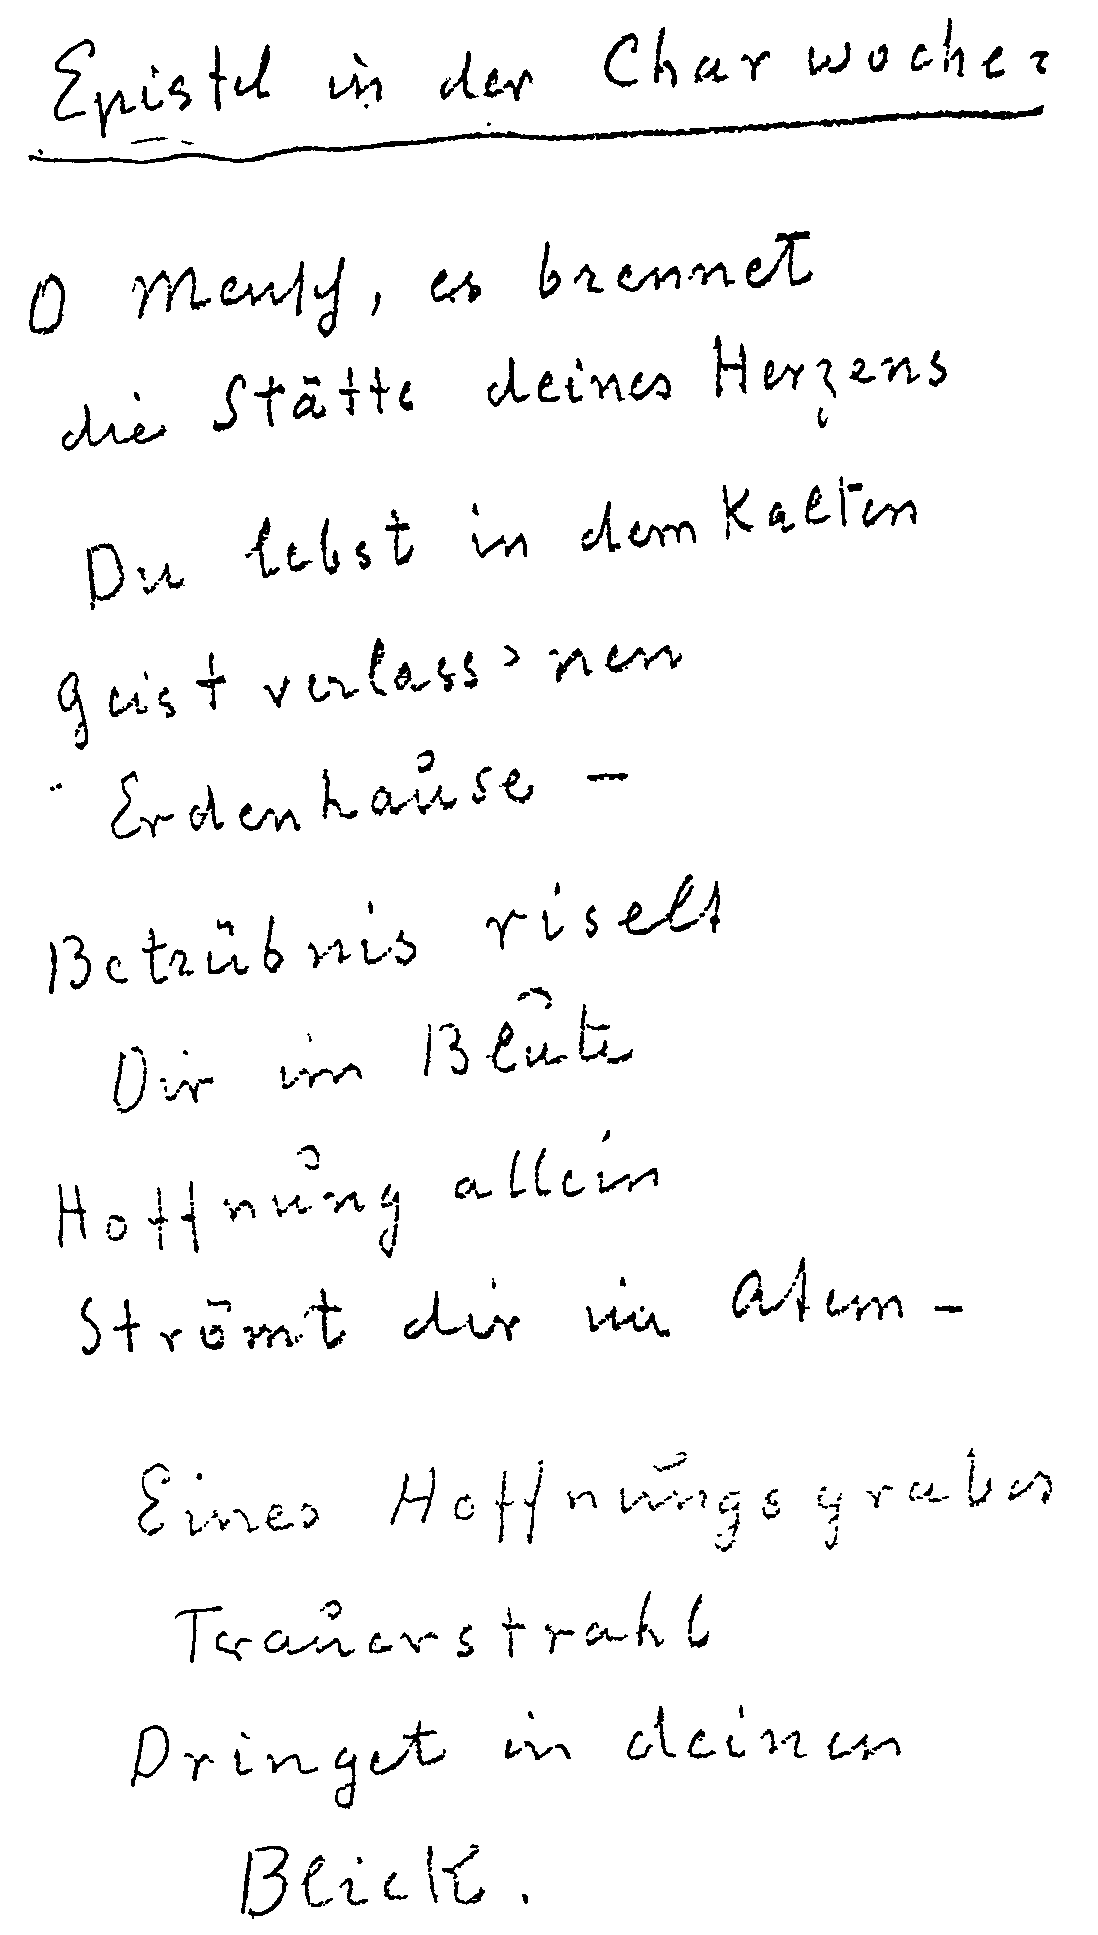 Epistel in der Charwoche:
O Mensch, es brennet
die Stätte deines Herzens
Du lebst in dem Kalten
Geist verlass'nen
Erdenhause –
Betrübnis riselt
Dir im Blute
Hoffnung allein
Strömt dir im Atem –
Eines Hoffnungsgrabes
Trauerstrahl
Dringet in deinen
Blick.